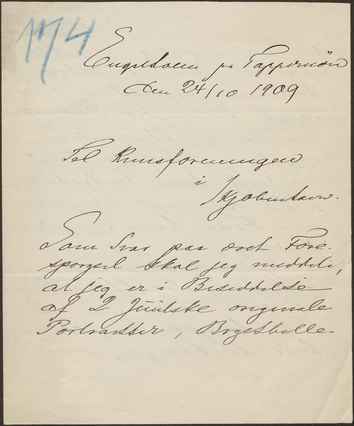 174
Engelholm pr Tappernöie
den 24/10 1909
Til Kunsforeningen
i
Kjøbenhavn.
Som Svar paa æret Fore-
sporgsel skal jeg meddele,
at jeg er i Besiddelse
af 2 Juelske originale
Portrætter, Brystbille-